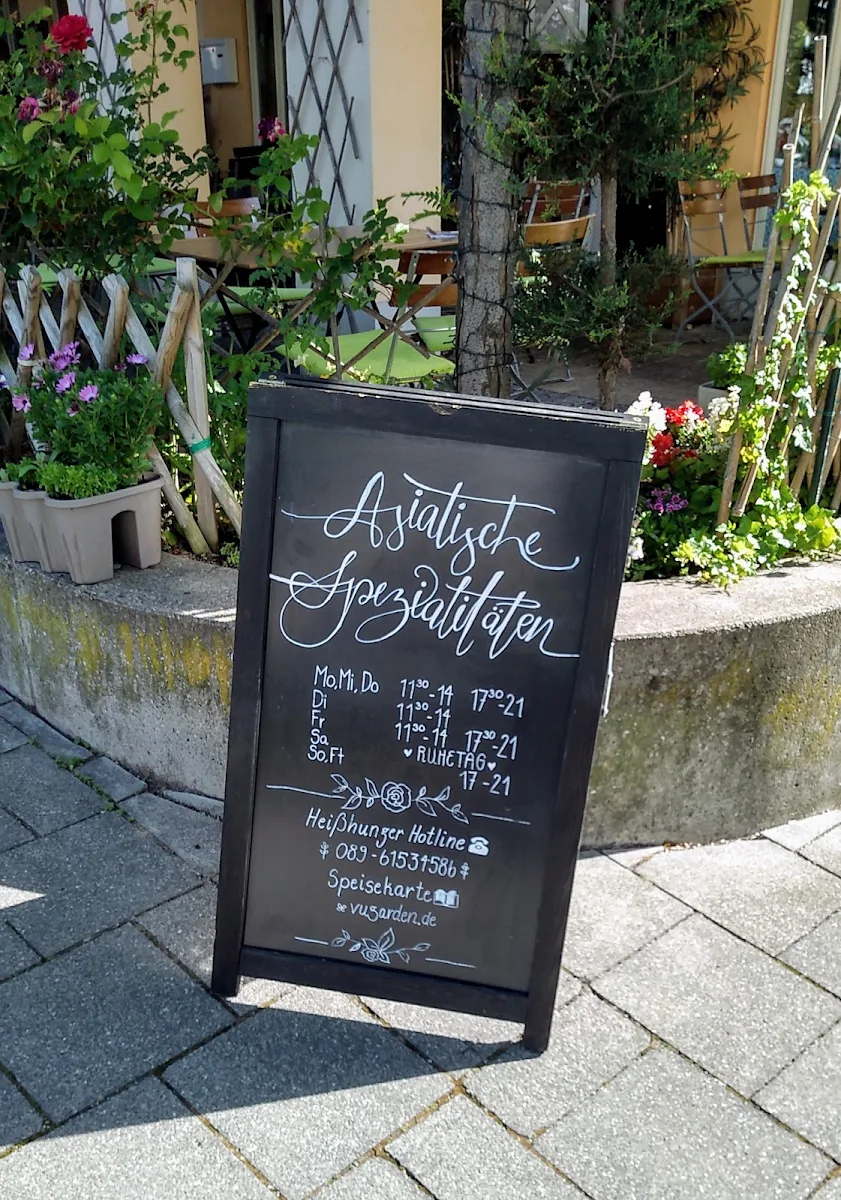 Asiatische
Spezialitäten
Mo, Mi, Do 11³⁰-14 17³⁰-21
Di 11³⁰-14
Fr 11³⁰-14 17³⁰-21
Sa ♥ RUHETAG ♥
So, Ft 17-21
Heißhunger Hotline ☎
089-61534586
Speisekarte
vugarden.de